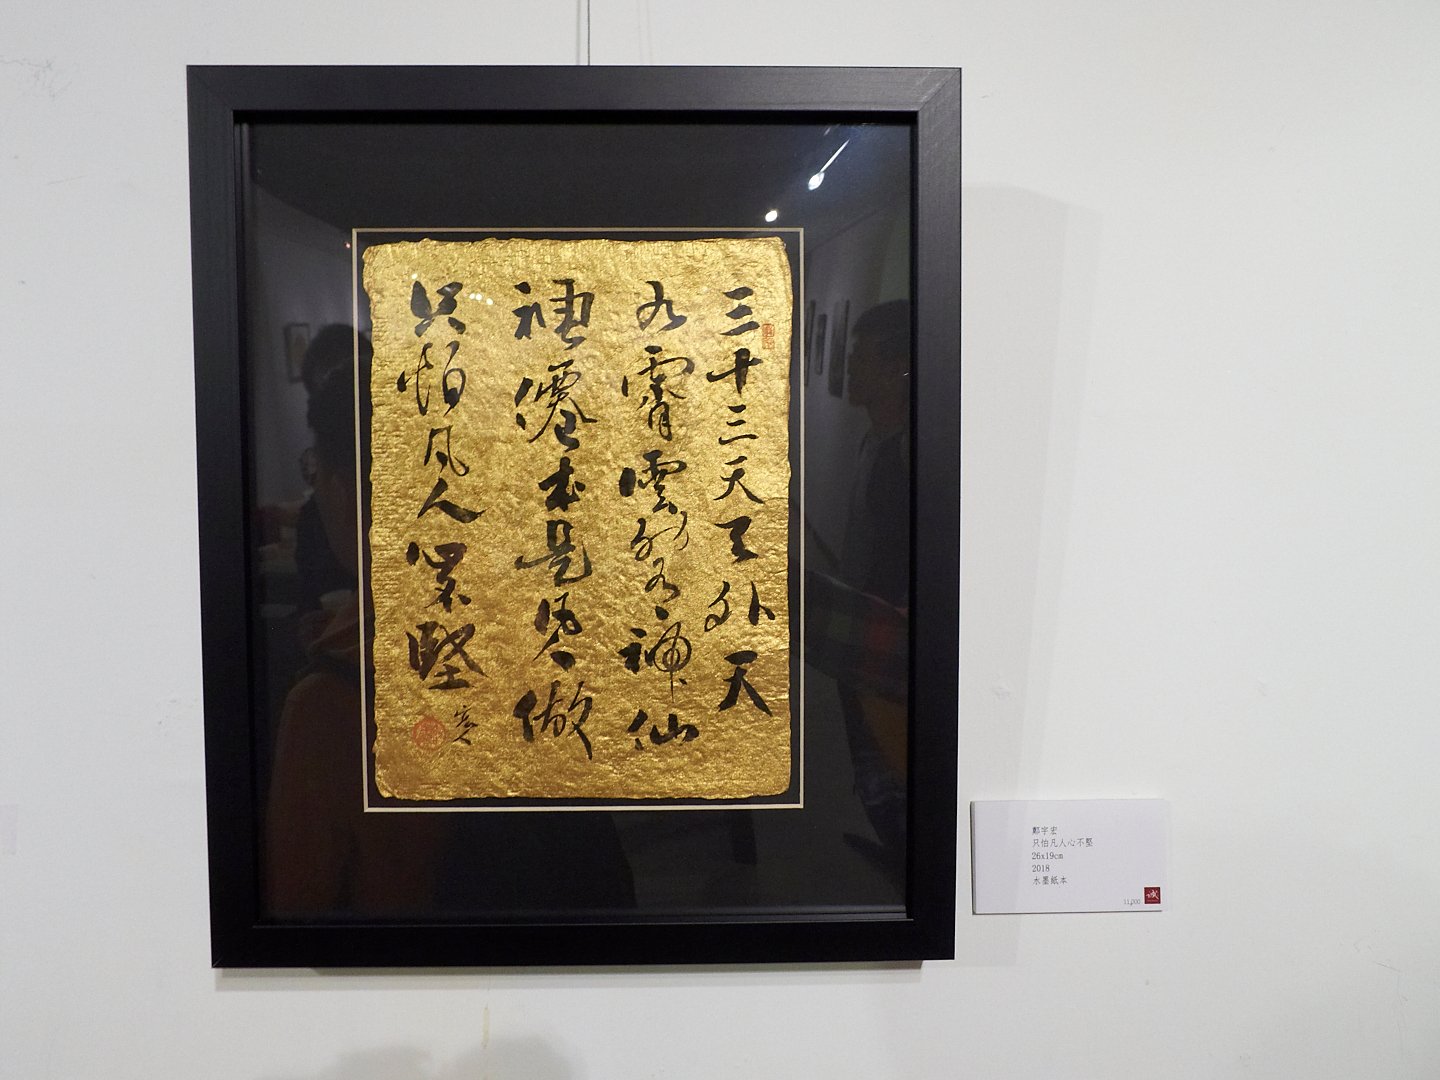 三十三天天外天
九霄雲外有神仙
神僊本是凡人做
只怕凡人心不堅
鄭宇宏
只怕凡人心不堅
26x19cm
2018
水墨紙本
11,000
誠